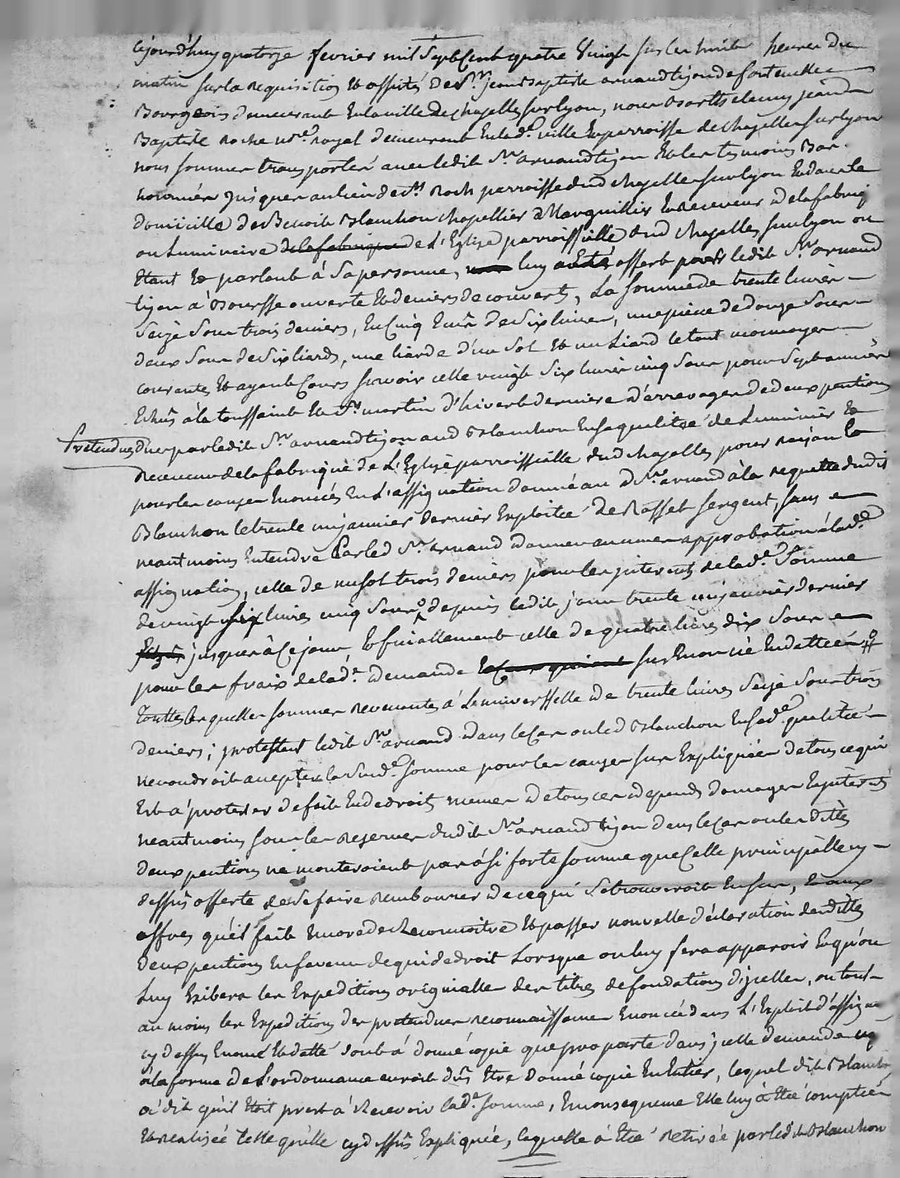 Cejourd'huy quatorze fevrier mil Sept Cent quatre Vingt sur les huit heures du
matin sur la requisition et assisté de Sr. jean Baptiste arnaud tijon de fontenelle
Bourgeois demeurant en la ville de chazelles sur lyon, nous Barthelemy jean
Baptiste Roche nore. royal demeurant en lad. ville et parroisse de chazelles sur lyon
nous sommes transportés avec ledit Sr. arnaud tijon et les tesmoins Bas
nommés jusques au lieu de St. Roch parroisse dud. chazelles sur lyon et dans le
domicille de Benoit Blanchon chapellier et Marguillier et receveur de la fabriq
ou Luminaire de la fabrique de L'Eglise parroissielle dud. chazelles sur lyon ou
étant et parlant à sa personne, luy a été offert par ledit Sr. arnaud
tijon à Bourse ouverte et deniers decouverts, La somme de trente livres
Seize Sous trois deniers, En Cinq Ecus de Six livres, une piece de douze Sous
deux Sous de Six liards, une liarde d'un Sol et un Liard le tout monnoye
courante et ayant Cours sçavoir celle vingt Six livres cinq Sous pour Sept années
Echus à la toussaint et St. martin d'hivert derniere d'arrerages de deux pentions
Pretendues dues par ledit Sr. arnaud tijon aud. Blanchon En sa qualité de Luminier et
Receveur de la fabrique de L'Eglise parroissielle dud. chazelles pour raison et
pour les causes Enoncés en L'assignation donnée aud. Sr. arnaud à la requette dudit
Blanchon le trente un janvier dernier Exploitée de Rasset sergent, sans
neantmoins Entendre Par led. Sr. arnaud donner aucunes approbation à lade.
assignation, celle de un sol trois deniers pour les interets de lade. Somme
de vingt six livres cinq Sous depuis ledit jour trente un janvier dernier
jusques à Ce jour et finallement celle de quatre livres dix Sous
pour les fraix de lade. demande sus Enoncié Endattée
touttes lesquelles sommes revenantes à L'universselle de trente livres Seize Sous trois
deniers; protestant ledit Sr. arnaud dans le Cas ou led. Blanchon En sade. qualité
ne voudroit accepter la Susde. Somme pour les causes sus Expliquées de tous ce qui
Est à protester de fait et de droit, memes de tous ces depends domages Interets
neantmoins sous les Reserves dudit Sr. arnaud tijon dans le Cas ou lesdittes
deux pentions ne monteroient pas à si forte Somme que Celle principalle cy
dessus offerte de Se faire rembourser de ce qui Se trouveroit En sus, et aux
offres qu'il fait Encore de Reconnoitre et passer nouvelle déclaration desdittes
deux pentions En faveur de qui de droit Lorsque on luy fera apparois Et qu'on
Luy Exibera les Expeditions originalles des titres de fondations d'jcelles, ou tout
au moins les Expeditions des pretendues reconnaissances Enoncées dans L'Exploit d'assign
cy dessus Enoncé et datté dont a donné copie que pro parte dans jcelle demande
à la forme de L'ordonnance auroit dus Etre donné copie En Entier, lequel dit Blanchon
a dit qu'il Etoit prest à Recevoir lade. Somme, En consequence Elle luy à Eté comptée
et realisée telle qu'elle cy dessus Expliquée, laquelle à Eté retirée par led. Blanchon